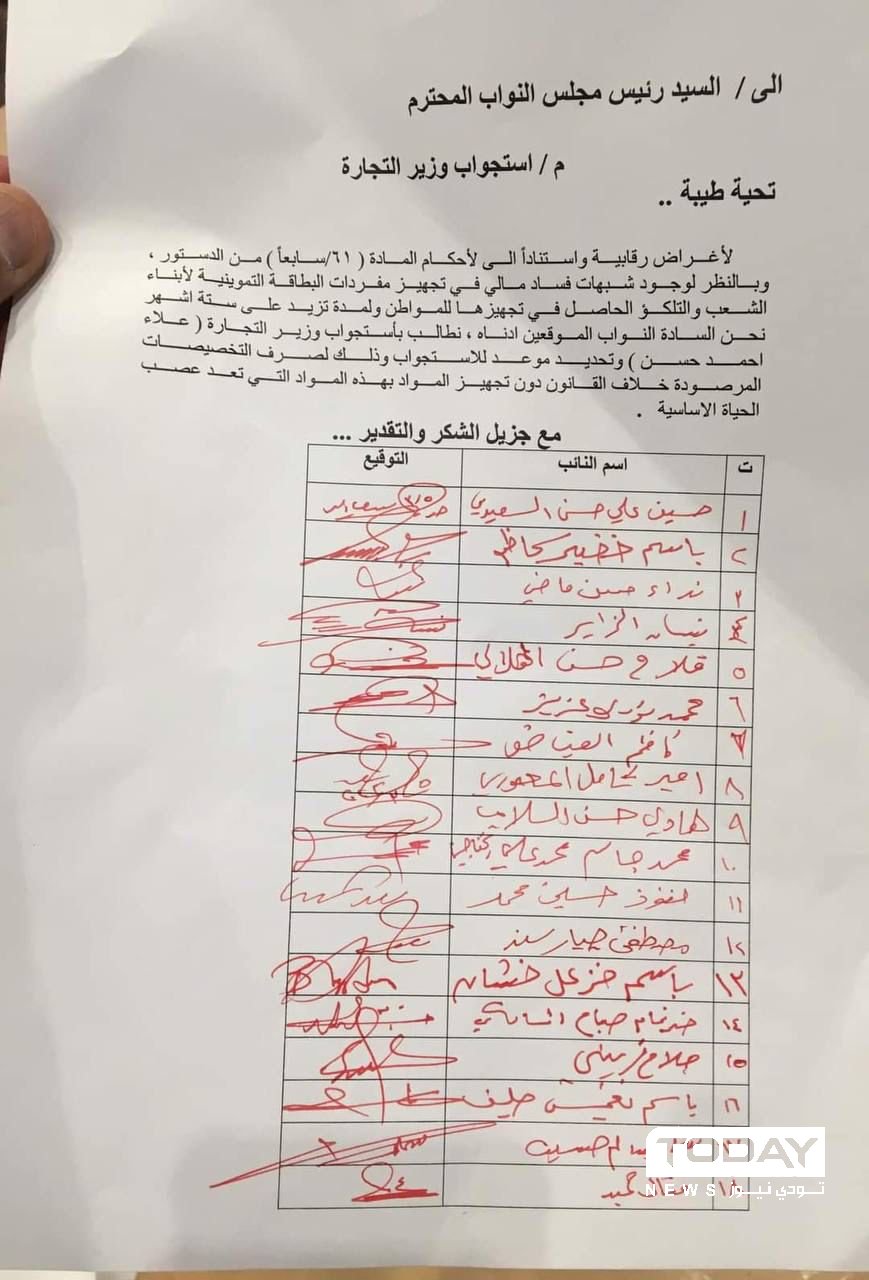 الى / السيد رئيس مجلس النواب المحترم
م / استجواب وزير التجارة
تحية طيبة ..
لأغراض رقابية واستناداً الى لأحكام المادة ( ٦١/سابعاً ) من الدستور ،
وبالنظر لوجود شبهات فساد مالي في تجهيز مفردات البطاقة التموينية لأبناء
الشعب والتلكؤ الحاصل في تجهيزها للمواطن ولمدة تزيد على ستة اشهر
نحن السادة النواب الموقعين ادناه ، نطالب بأستجواب وزير التجارة ( علاء
احمد حسن ) وتحديد موعد للاستجواب وذلك لصرف التخصيصات
المرصودة خلاف القانون دون تجهيز المواد بهذه المواد التي تعد عصب
الحياة الاساسية .
مع جزيل الشكر والتقدير ...
ت اسم النائب التوقيع
١ حسين علي حسن السعيدي
٢ باسم خضير كاظم
٣ نداء حسين ماضي
٤ نيسان الزاير
٥ فلاح حسن الهلالي
٦ محمد نوري عزيز
٧ كاظم
٨ امير كامل المعموري
٩ هادي حسن السلامي
١٠ محمد جاسم محمد علي الخفاجي
١١ نفوذ حسين محمد
١٢ مصطفى جبار سند
١٣ باسم خزعل خشان
١٤ ضرغام صباح المالكي
١٥ صلاح زيني
١٦ باسم نغيمش
١٧ حسين
١٨
TODAY
NEWS تودي نيوز